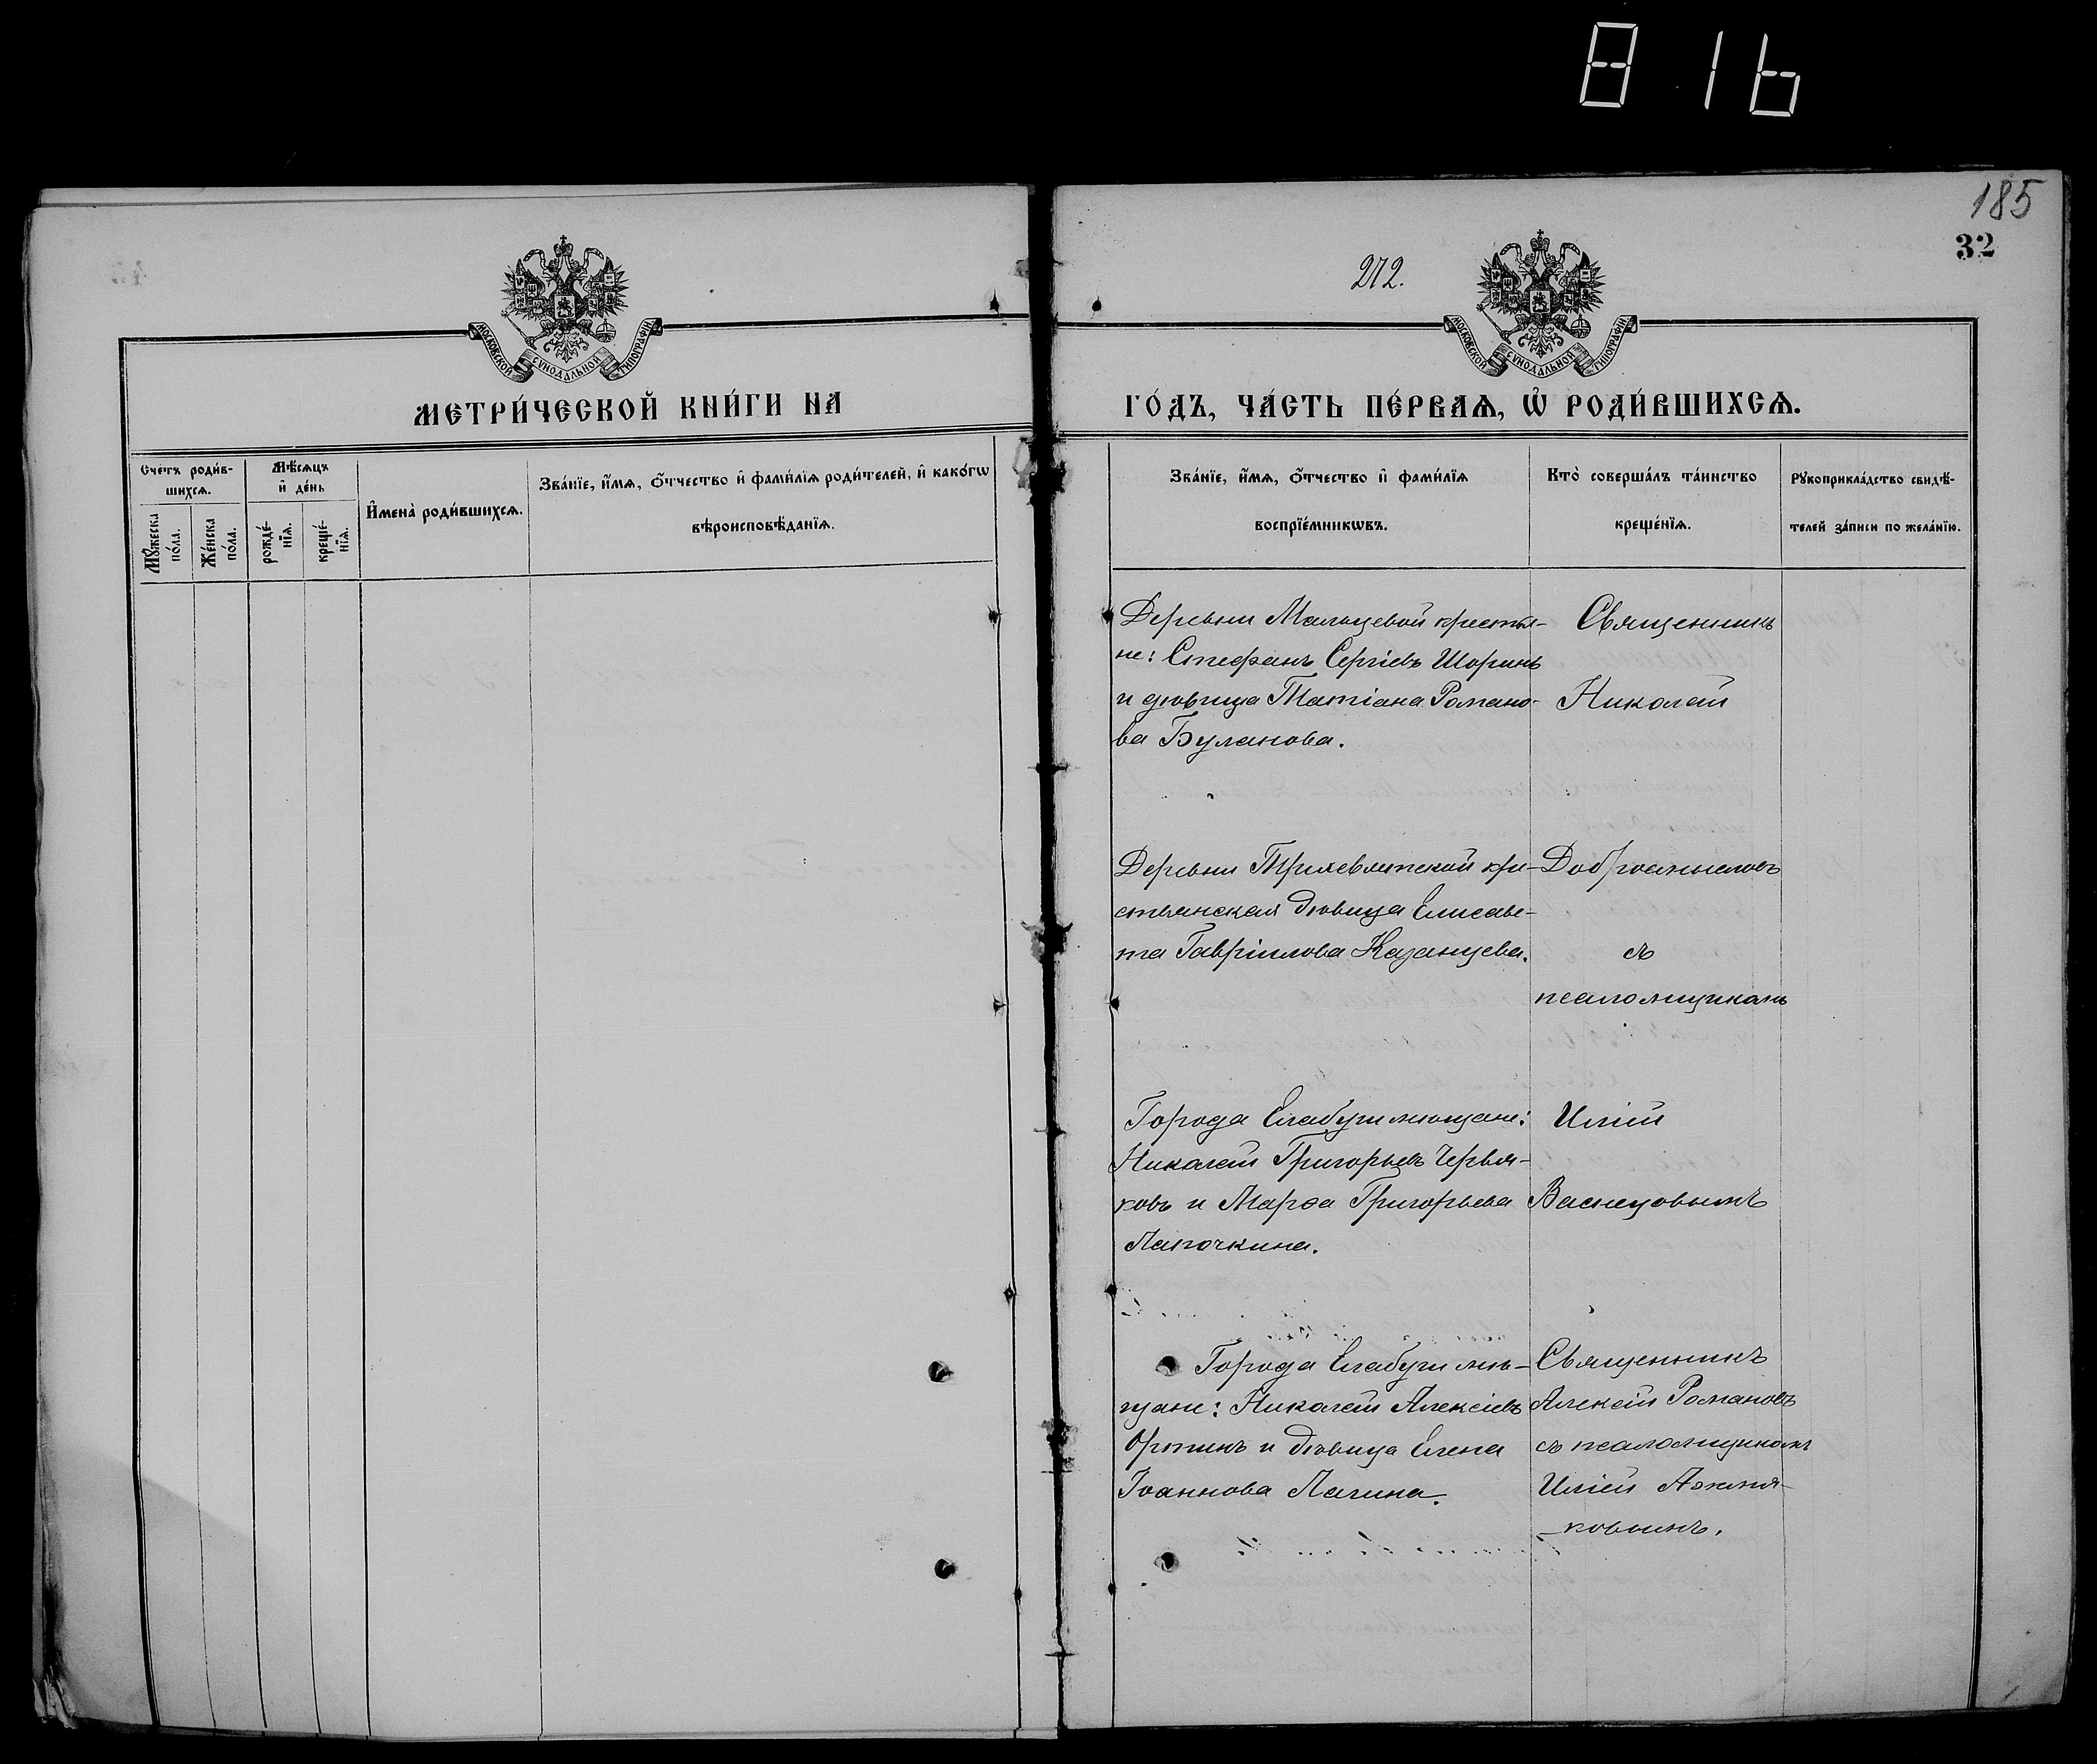 816
185
32
212.
МОСКОВСКОЙ СѴНОДАЛЬНОЙ ТИПОГРАФІИ
МОСКОВСКОЙ СѴНОДАЛЬНОЙ ТИПОГРАФІИ
МЕТРИ́ЧЕСКОЙ КНИ́ГИ НА
ГО́ДЪ, ЧА́СТЬ ПЕ́РВАѦ, Ѡ҆ РОДИ́ВШИХСѦ.
Сче́тъ роди́в-
шихсѧ.
Мѣ́сѧцъ
и҆ де́нь
Мꙋ́жеска
по́ла.
Же́нска
по́ла.
рожде́-
нїѧ.
креще́-
нїѧ.
И҆мена̀ роди́вшихсѧ.
Зва́нїе, и҆́мѧ, о҆́тчество и҆ фами́лїѧ роди́телей, и҆ како́гѡ
вѣроисповѣ́данїѧ.
Зва́нїе, и҆́мѧ, о҆́тчество и҆ фами́лїѧ
воспрїе́мникѡвъ.
Кто̀ соверша́лъ та́инство
креще́нїѧ.
Рꙋкоприкла́дство свидѣ́-
телей за́писи по жела́нїю.
Деревни Мальцевой крестья-
не: Стефанъ Сергіевъ Шоринъ
и дѣвица Татіана Романо-
ва Буланова.
Священникъ
Николай
Деревни Трехсвятской кре-
стьянская дѣвица Елисаве-
та Гавріилова Казанцева.
Добросмысловъ
съ
псаломщикомъ
Города Елабуги мѣщане:
Николай Григорьевъ Червя-
ковъ и Марѳа Григорьева
Лапочкина.
Иліей
Васнецовымъ
Города Елабуги мѣ-
щане: Николай Алексіевъ
и дѣвица Елена
Іоаннова Лагина.
Священникъ
Алексій Романовъ
съ псаломщикомъ
Иліей
ковымъ.